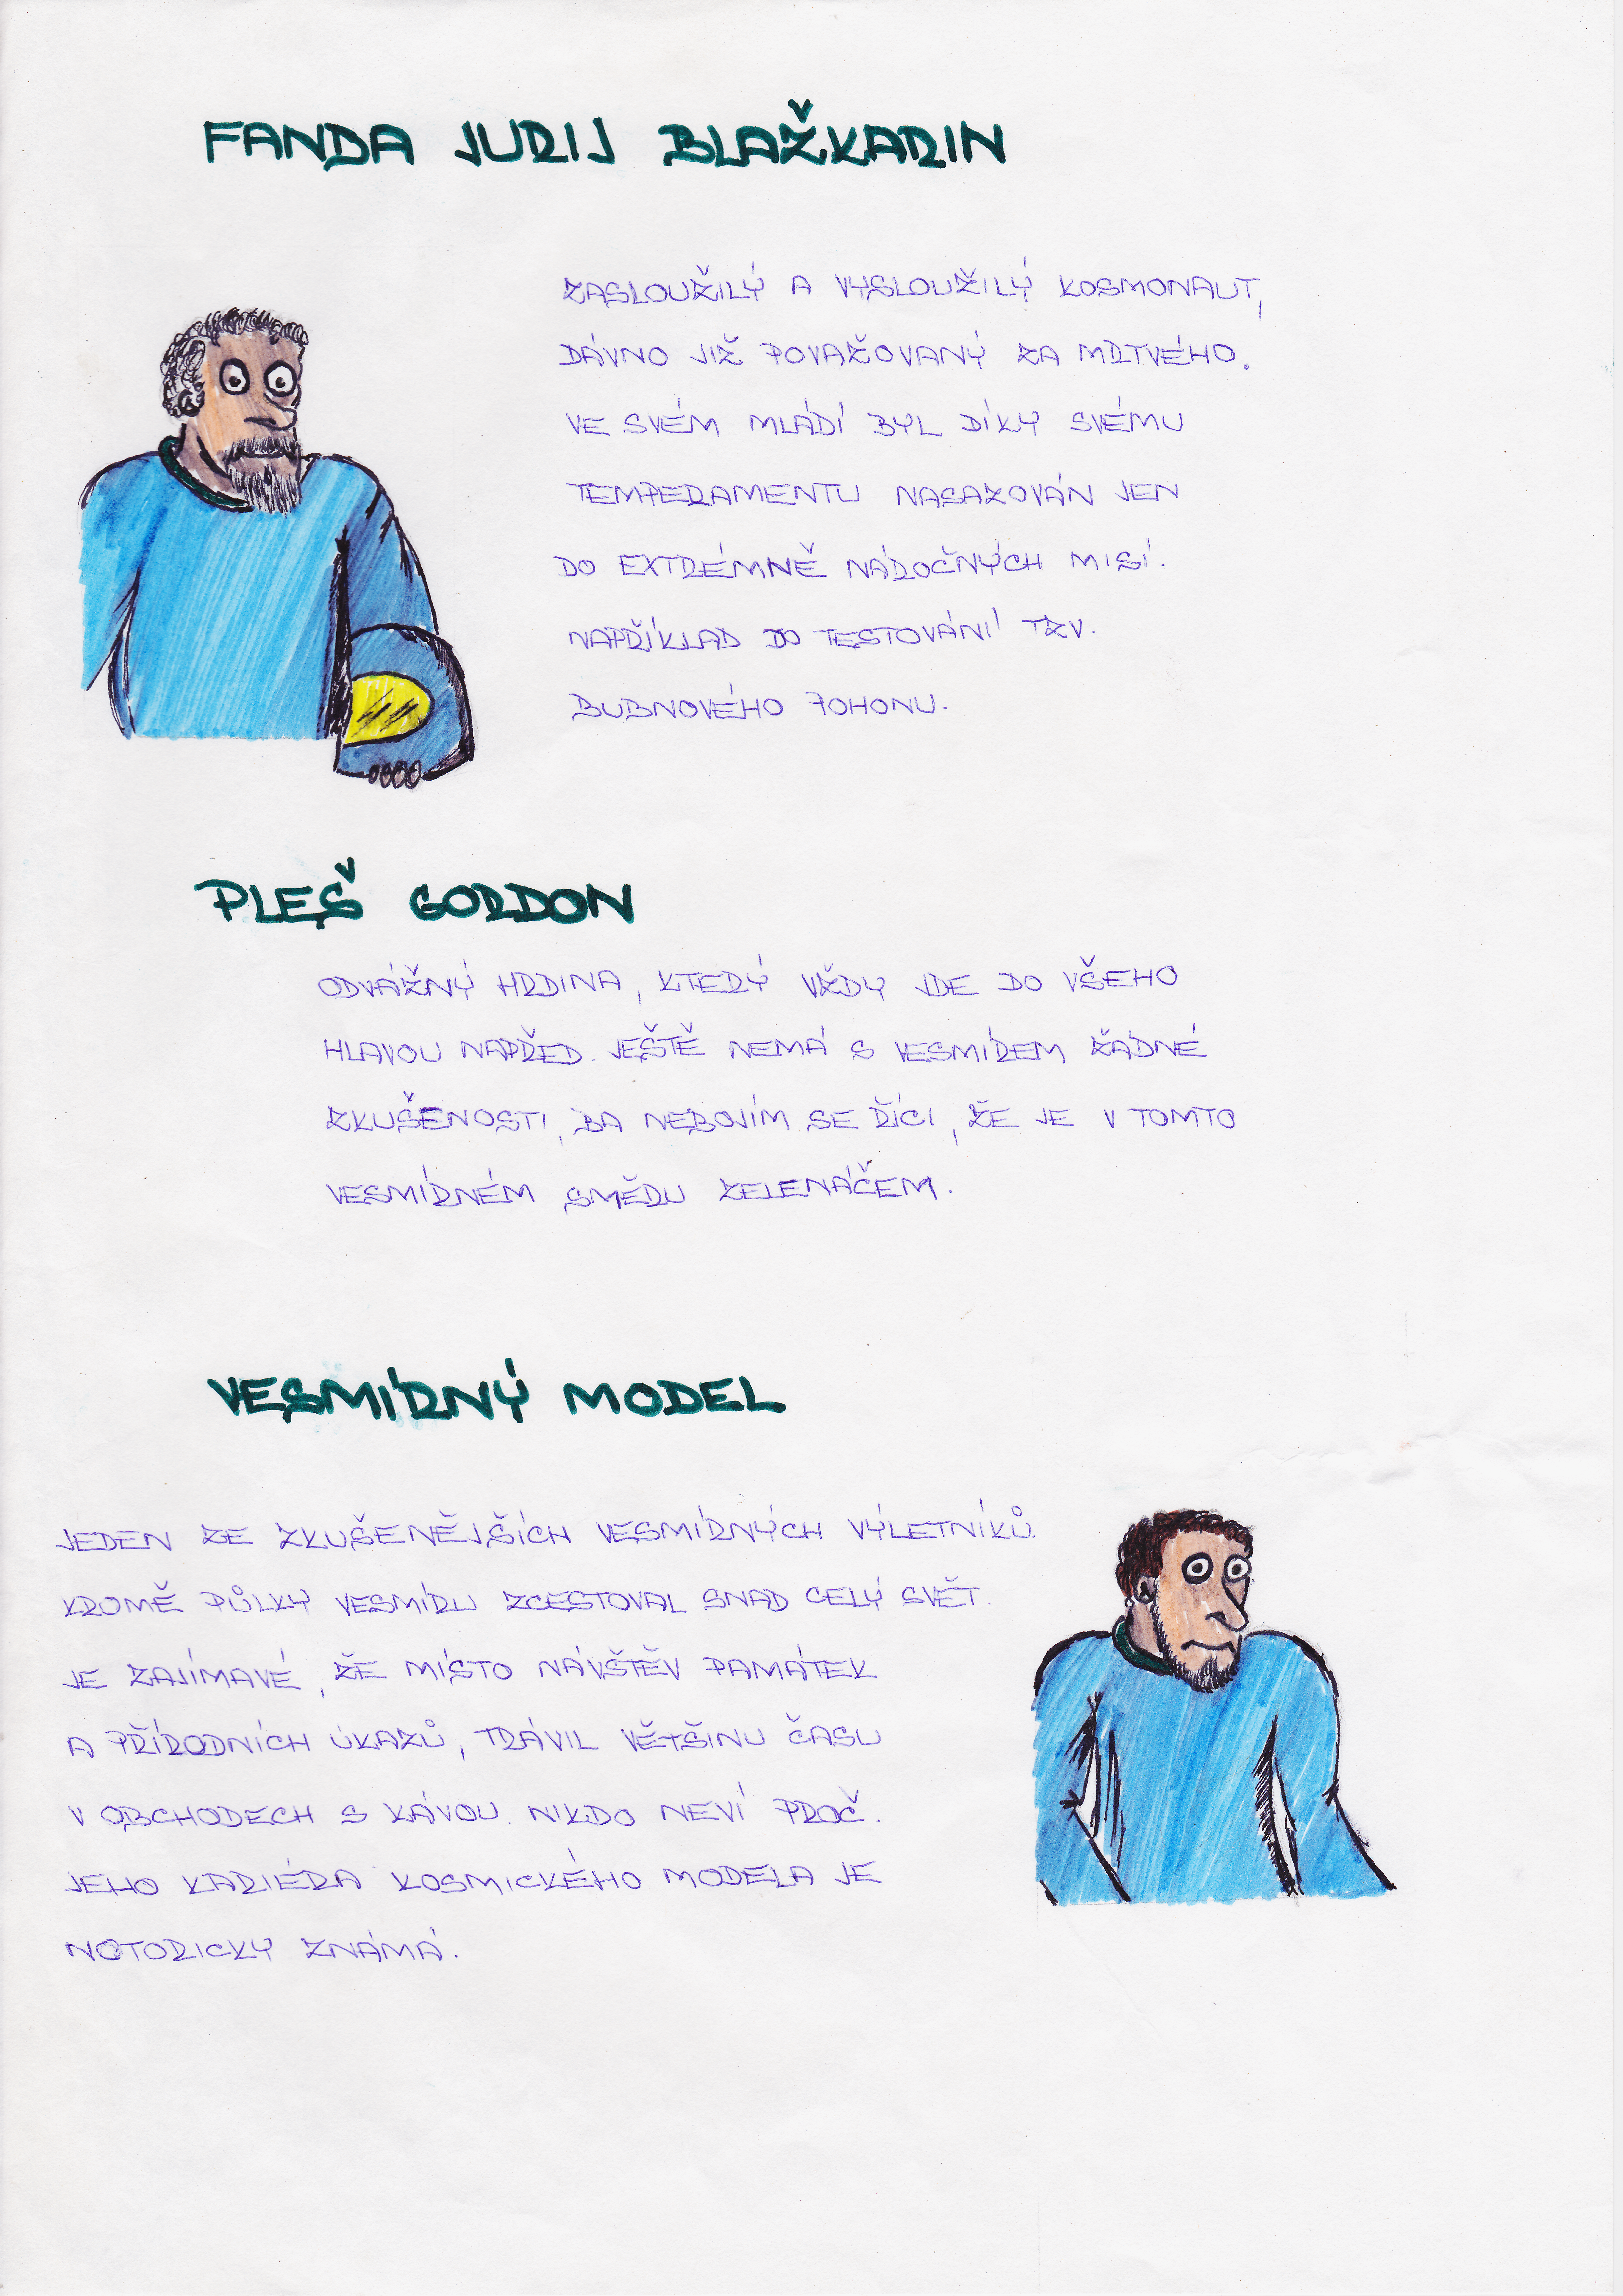 FANDA JURIJ BLAŽKARIN
ZASLOUŽILÝ A VYSLOUŽILÝ KOSMONAUT,
DÁVNO JIŽ POVAŽOVANÝ ZA MRTVÉHO.
VE SVÉM MLÁDÍ BYL DÍKY SVÉMU
TEMPERAMENTU NASAZOVÁN JEN
DO EXTRÉMNĚ NÁROČNÝCH MISÍ.
NAPŘÍKLAD DO TESTOVÁNÍ TZV.
BUBNOVÉHO POHONU.
PLEŠ GORDON
ODVÁŽNÝ HRDINA, KTERÝ VŽDY JDE DO VŠEHO
HLAVOU NAPŘED. JEŠTĚ NEMÁ S VESMÍREM ŽÁDNÉ
ZKUŠENOSTI, BA NEBOJÍM SE ŘÍCI, ŽE JE V TOMTO
VESMÍRNÉM SMĚRU ZELENÁČEM.
VESMÍRNÝ MODEL
JEDEN ZE ZKUŠENĚJŠÍCH VESMÍRNÝCH VÝLETNÍKŮ.
KROMĚ PŮLKY VESMÍRU ZCESTOVAL SNAD CELÝ SVĚT.
JE ZAJÍMAVÉ, ŽE MÍSTO NÁVŠTĚV PAMÁTEK
A PŘÍRODNÍCH ÚKAZŮ, TRÁVIL VĚTŠINU ČASU
V OBCHODECH S KÁVOU. NIKDO NEVÍ PROČ.
JEHO KARIÉRA KOSMICKÉHO MODELA JE
NOTORICKY ZNÁMÁ.